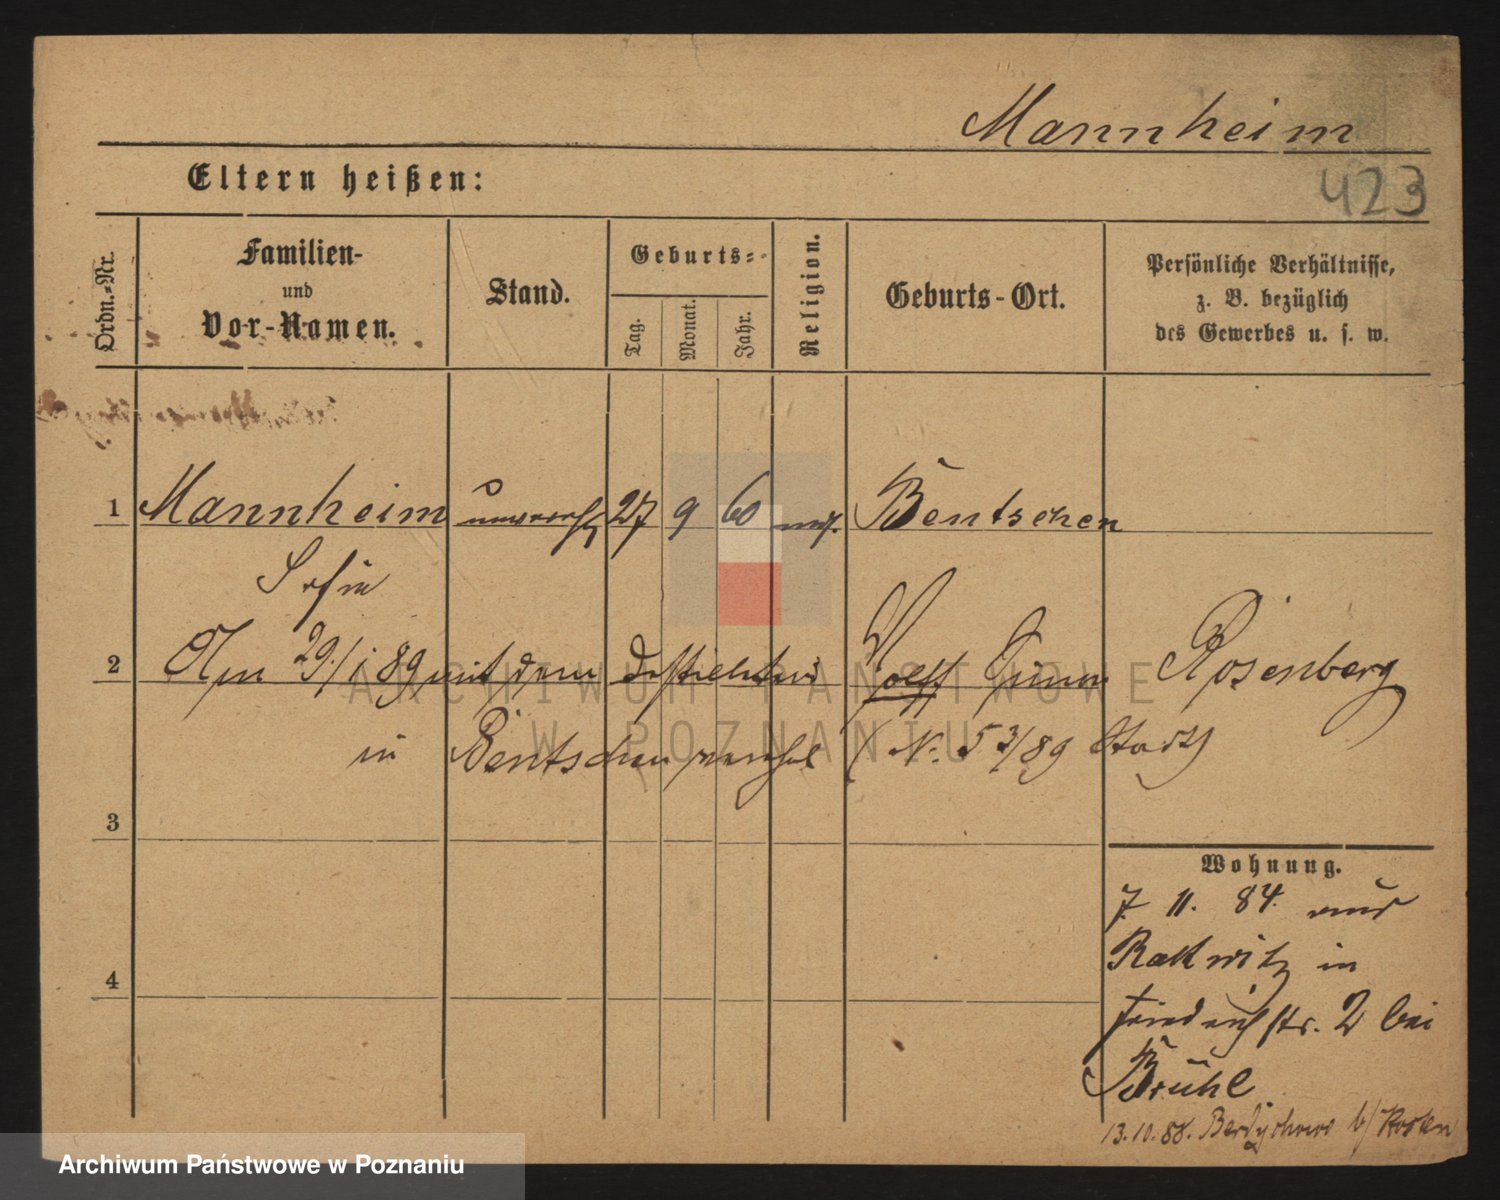 Mannheim
423
Eltern heißen:
Ordn.-Nr.
Familien-
und
Vor-Namen.
Stand.
Geburts-
Tag.
Monat.
Jahr.
Religion.
Geburts-Ort.
Persönliche Verhältnisse,
z. B. bezüglich
des Gewerbes u. s. w.
1 Mannheim 27 9 60 mos. Bentschen
2 Am 29./1. 89 mit dem Wolff Rosenberg
in Bentschen (N. 53/89 Stadt)
3
Wohnung.
7. 11. 84. aus
Rakwitz in
4
Friedrichstr. 2 bei
Brühl
13. 10. 88. Berdychowo b/ Posen
ARCHIWUM PAŃSTWOWE
W POZNANIU
Archiwum Państwowe w Poznaniu